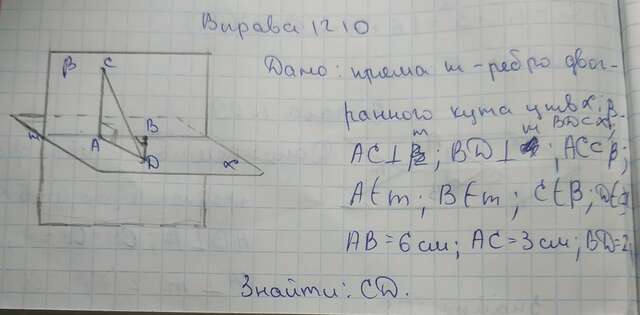 Вправа 1210
Дано: пряма m - ребро двог-
ранного кута між α і β.
AC⊥m; BD⊥m; AC⊂β; BD⊂α;
A∈m; B∈m; C∈β; D∈α
AB=6см; AC=3см; BD=2
Знайти: CD.
β
C
m
A
B
D
α